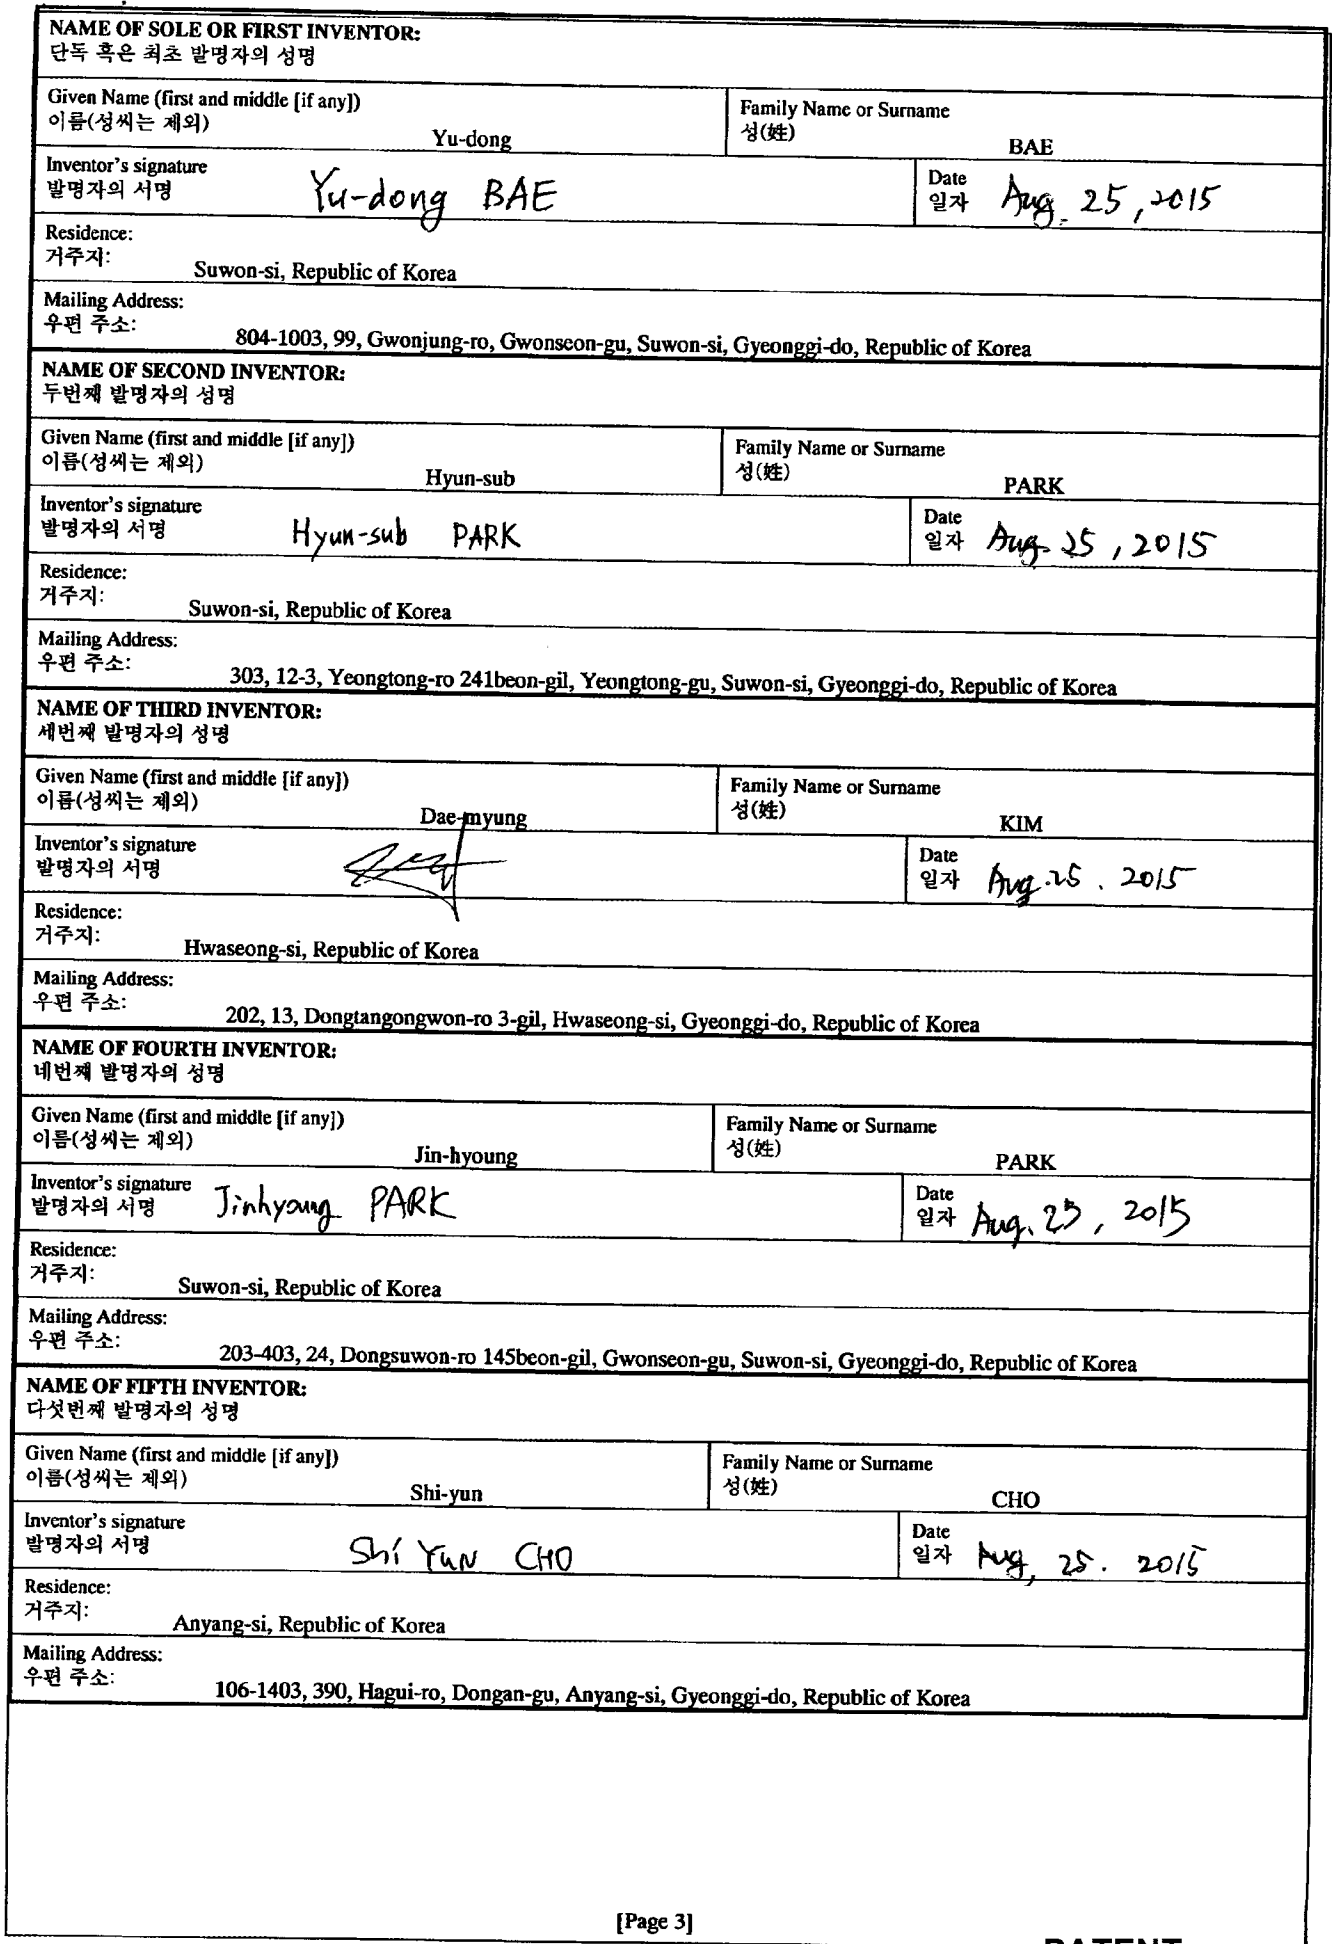 NAME OF SOLE OR FIRST INVENTOR:
단독 혹은 최초 발명자의 성명
Given Name (first and middle [if any])
이름(성씨는 제외)
Yu-dong
Family Name or Surname
성(姓)
BAE
Inventor's signature
발명자의 서명
Yu-dong BAE
Date
일자
Aug. 25, 2015
Residence:
거주지:
Suwon-si, Republic of Korea
Mailing Address:
우편 주소:
804-1003, 99, Gwonjung-ro, Gwonseon-gu, Suwon-si, Gyeonggi-do, Republic of Korea
NAME OF SECOND INVENTOR:
두번째 발명자의 성명
Given Name (first and middle [if any])
이름(성씨는 제외)
Hyun-sub
Family Name or Surname
성(姓)
PARK
Inventor's signature
발명자의 서명
Hyun-sub PARK
Date
일자
Aug. 25, 2015
Residence:
거주지:
Suwon-si, Republic of Korea
Mailing Address:
우편 주소:
303, 12-3, Yeongtong-ro 241beon-gil, Yeongtong-gu, Suwon-si, Gyeonggi-do, Republic of Korea
NAME OF THIRD INVENTOR:
세번째 발명자의 성명
Given Name (first and middle [if any])
이름(성씨는 제외)
Dae-myung
Family Name or Surname
성(姓)
KIM
Inventor's signature
발명자의 서명
Date
일자
Aug. 25. 2015
Residence:
거주지:
Hwaseong-si, Republic of Korea
Mailing Address:
우편 주소:
202, 13, Dongtangongwon-ro 3-gil, Hwaseong-si, Gyeonggi-do, Republic of Korea
NAME OF FOURTH INVENTOR:
네번째 발명자의 성명
Given Name (first and middle [if any])
이름(성씨는 제외)
Jin-hyoung
Family Name or Surname
성(姓)
PARK
Inventor's signature
발명자의 서명
Jinhyoung PARK
Date
일자
Aug. 25, 2015
Residence:
거주지:
Suwon-si, Republic of Korea
Mailing Address:
우편 주소:
203-403, 24, Dongsuwon-ro 145beon-gil, Gwonseon-gu, Suwon-si, Gyeonggi-do, Republic of Korea
NAME OF FIFTH INVENTOR:
다섯번째 발명자의 성명
Given Name (first and middle [if any])
이름(성씨는 제외)
Shi-yun
Family Name or Surname
성(姓)
CHO
Inventor's signature
발명자의 서명
Shi Yun CHO
Date
일자
Aug, 25. 2015
Residence:
거주지:
Anyang-si, Republic of Korea
Mailing Address:
우편 주소:
106-1403, 390, Hagui-ro, Dongan-gu, Anyang-si, Gyeonggi-do, Republic of Korea
[Page 3]
PATENT